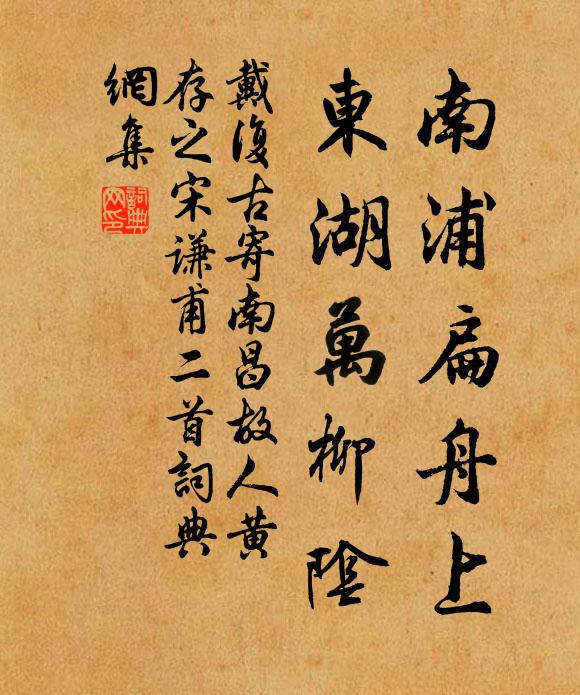 南浦扁舟上
東湖萬柳陰
戴復古寄南昌故人黃
存之宋謙甫二首詞典
網集
詞典
网印